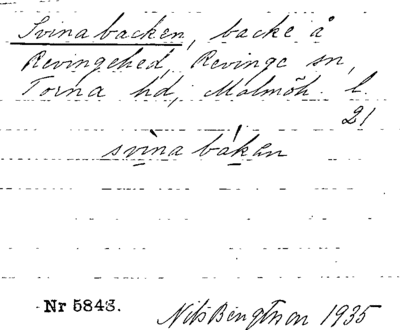 Svinabacken, backe å
Revingehed, Revinge sn,
Torna hd, Malmöh. l.
21
svìna bákan
Nr 5843.
Nils Bengtson 1935